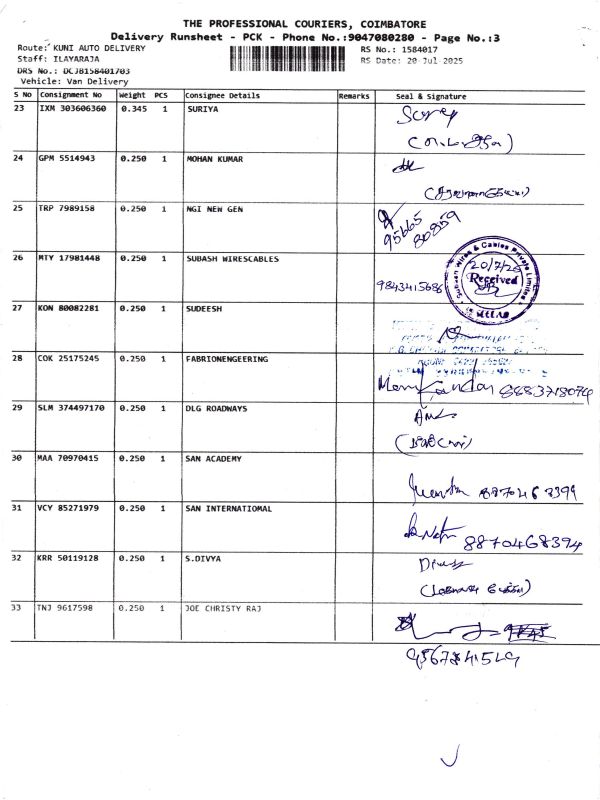 THE PROFESSIONAL COURIERS, COIMBATORE
Delivery Runsheet - PCK - Phone No.:9047080280 - Page No.:3
Route: KUNI AUTO DELIVERY
RS No.: 1584017
Staff: ILAYARAJA
RS Date: 20-Jul-2025
DRS No.: DCJB158401703
Vehicle: Van Delivery
S No Consignment No Weight PCS Consignee Details Remarks Seal & Signature
23 IXM 303606360 0.345 1 SURIYA
24 GPM 5514943 0.250 1 MOHAN KUMAR
25 TRP 7989158 0.250 1 NGI NEW GEN
95665
80859
26 MTY 17981448 0.250 1 SUBASH WIRESCABLES
Subash Wires & Cables Private Limited
20/7/25
Received
9843415686
27 KON 80082281 0.250 1 SUDEESH
28 COK 25175245 0.250 1 FABRIONENGEERING
8883718074
29 SLM 374497170 0.250 1 DLG ROADWAYS
30 MAA 70970415 0.250 1 SAN ACADEMY
8870468399
31 VCY 85271979 0.250 1 SAN INTERNATIONAL
8870468394
32 KRR 50119128 0.250 1 S.DIVYA
33 TNJ 9617598 0.250 1 JOE CHRISTY RAJ